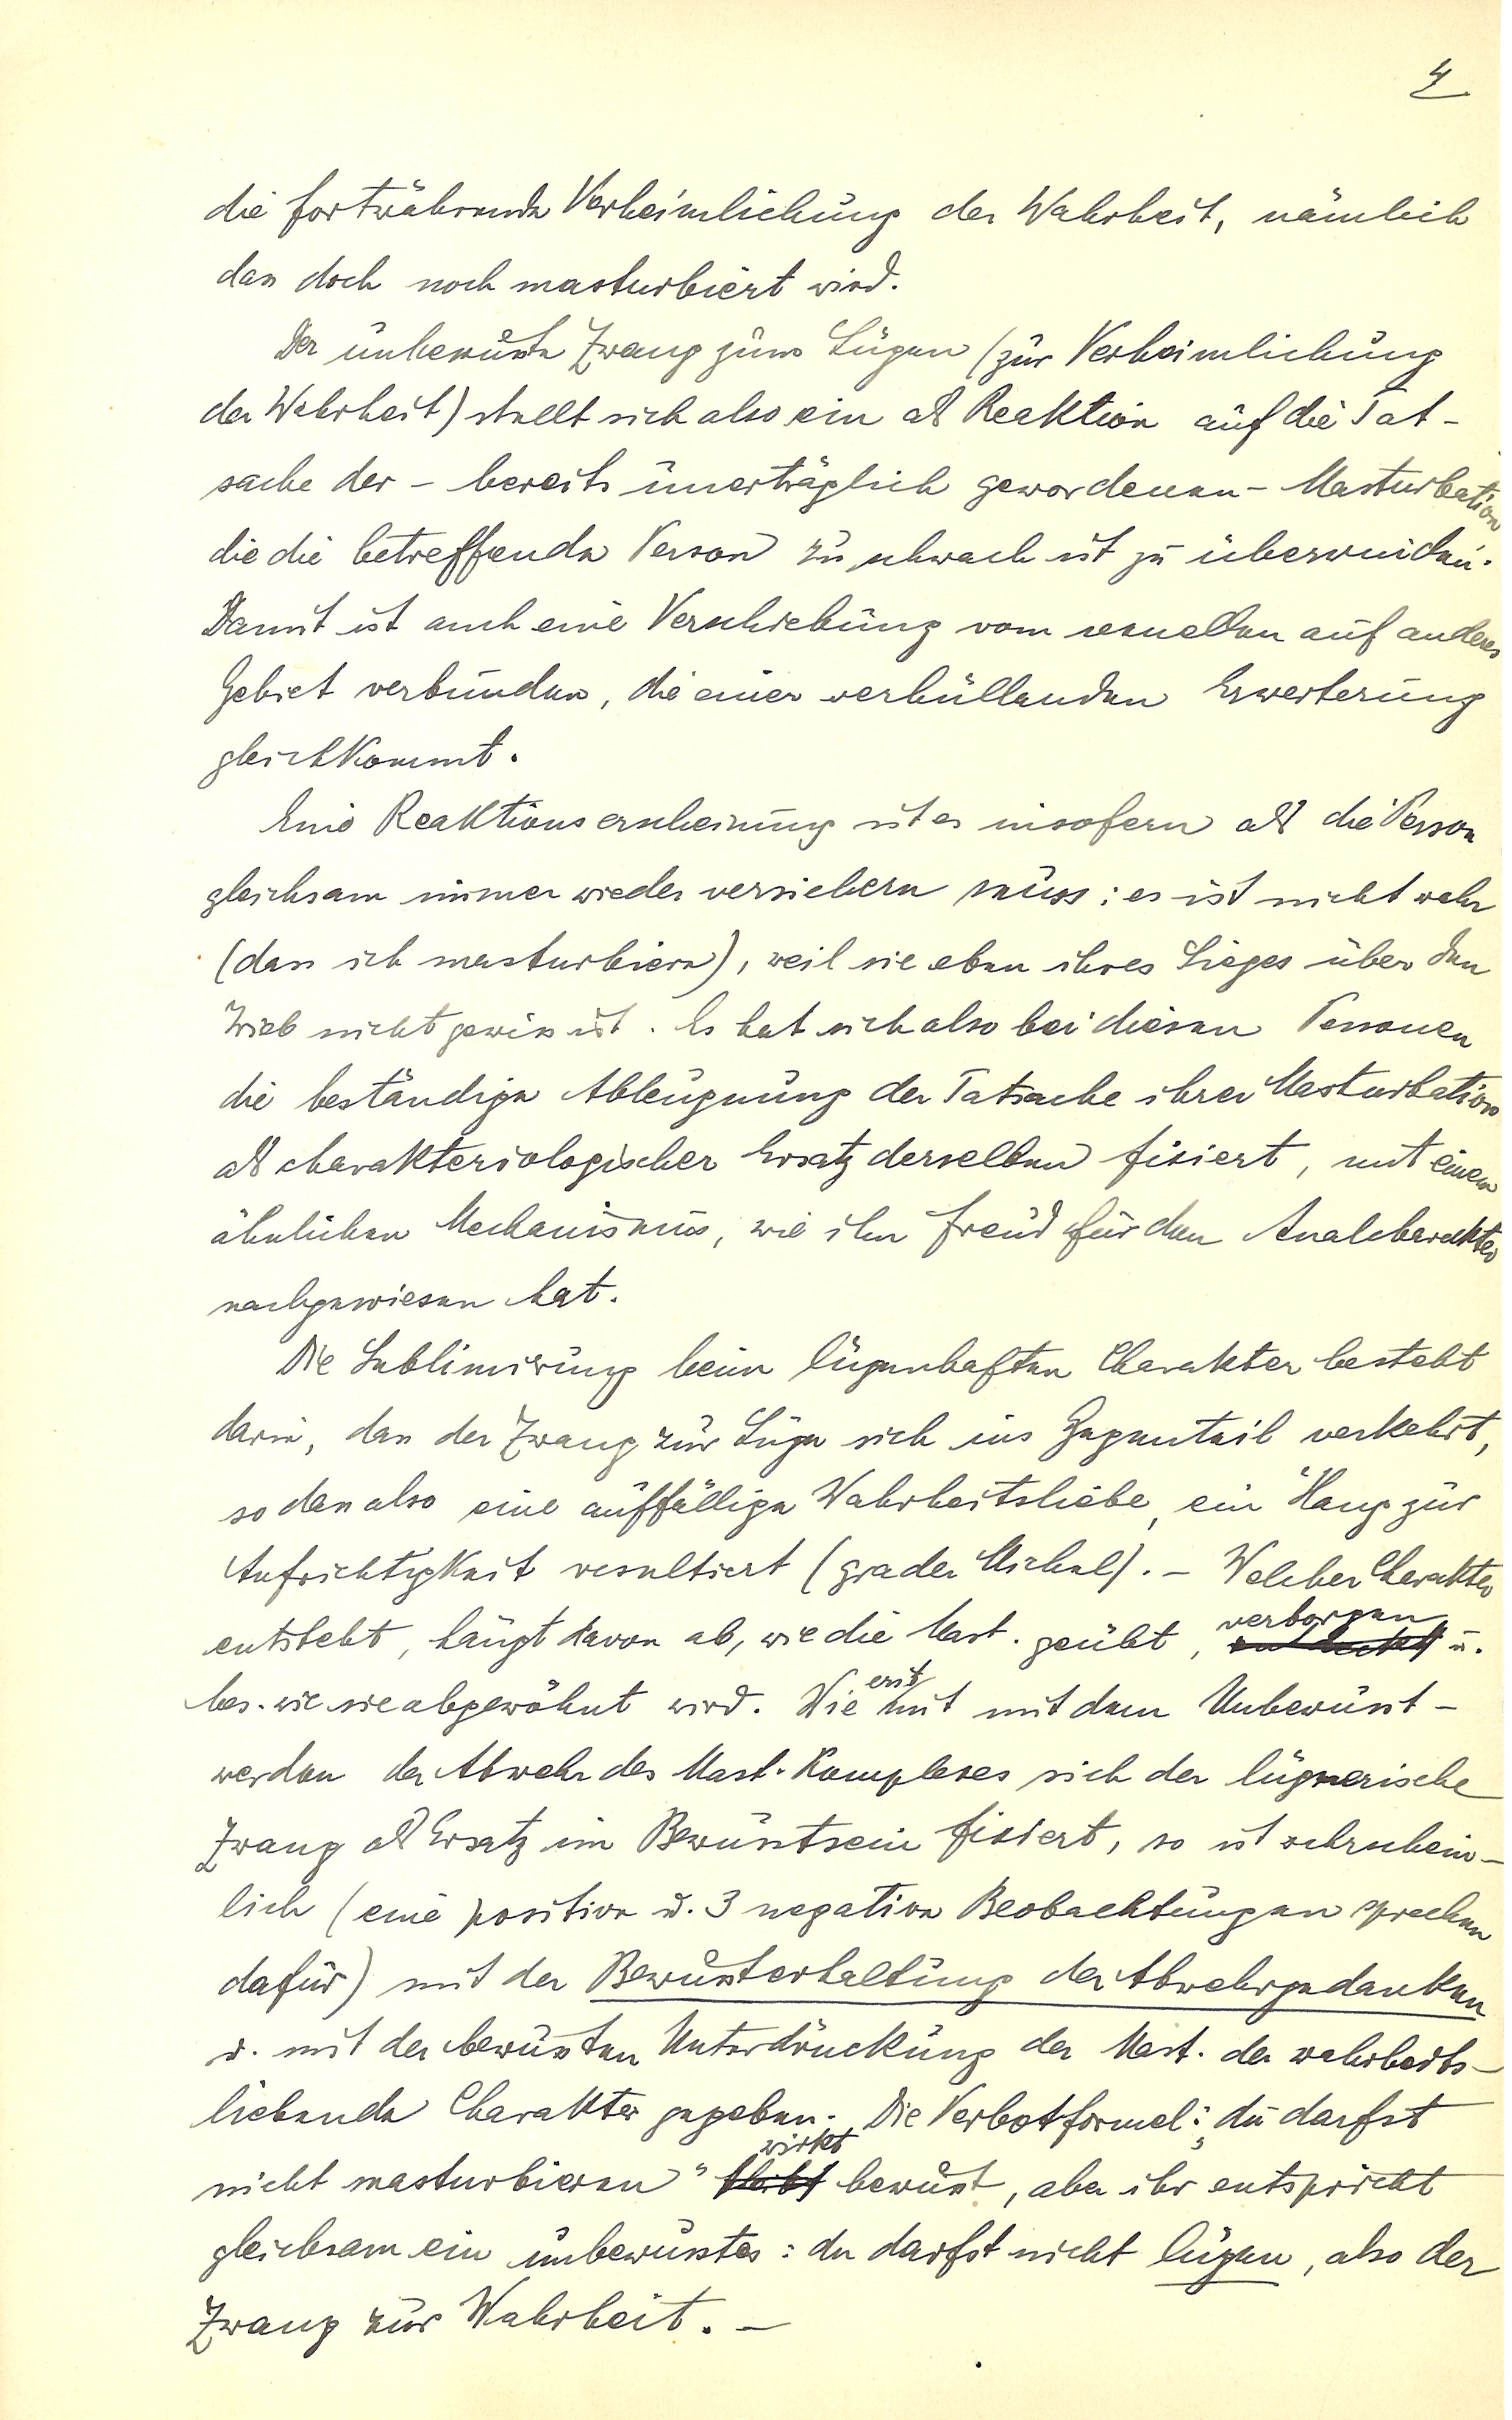 4
die fortwährende Verheimlichung der Wahrheit, nämlich
dass doch noch masturbiert wird.
Der unbewusste Zwang zum Lügen (zur Verheimlichung
der Wahrheit) stellt sich also ein als Reaktion auf die Tat-
sache der - bereits unerträglich gewordenen - Masturbation
die die betreffende Person zu schwach ist zu überwinden.
Damit ist auch eine Verschiebung vom sexuellen auf anderes
Gebiet verbunden, die einer verhüllenden Erweiterung
gleichkommt.
Eine Reaktionserscheinung ist es insofern als die Person
gleichsam immer wieder versichern muss: es ist nicht wahr
(dass ich masturbiere), weil sie eben ihres Sieges über den
Trieb nicht gewiss ist. Es hat sich also bei diesen Personen
die beständige Ableugnung der Tatsache ihrer Masturbation
als charakteriologischer Ersatz derselben fixiert, mit einem
ähnlichen Mechanismus, wie ihn Freud für den Analcharakter
nachgewiesen hat.
Die Sublimierung beim lügenhaften Charakter besteht
darin, dass der Zwang zur Lüge sich ins Gegenteil verkehrt,
so dass also eine auffällige Wahrheitsliebe, ein Hang zur
Aufrichtigkeit resultiert (grader Michel). - Welcher Charakter
entsteht, hängt davon ab, wie die Mast. geübt, verborgen u.
bes. wie sie abgewöhnt wird. Wie erst mit dem Unbewusst-
werden der Abwehr des Mast.-Komplexes sich der lügnerische
Zwang als Ersatz im Bewusstsein fixiert, so ist wahrschein-
lich (eine positive u. 3 negative Beobachtungen sprechen
dafür) mit der Bewussterhaltung der Abwehrgedanken
u. mit der bewussten Unterdrückung der Mast. der wahrheits-
liebende Charakter gegeben. Die Verbotformel: „du darfst
nicht masturbieren" wirkt bewusst, aber ihr entspricht
gleichsam ein unbewusstes: du darfst nicht lügen, also der
Zwang zur Wahrheit. -